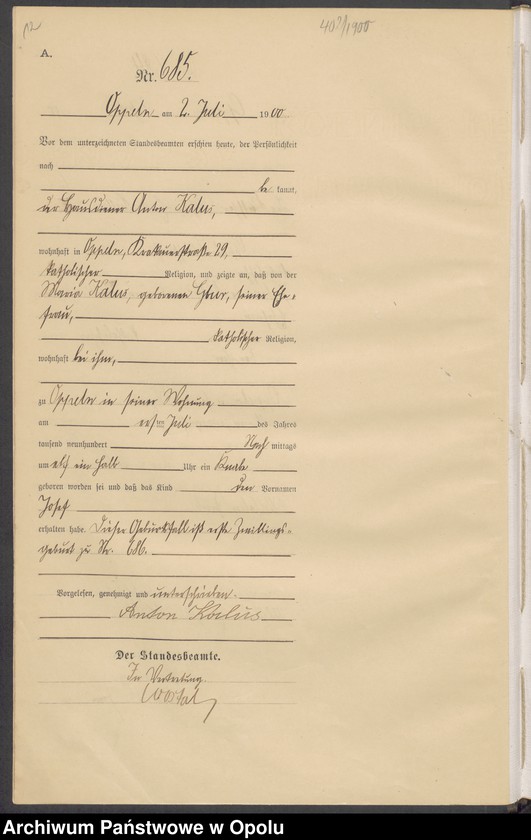 A.
Nr. 685.
Oppeln am 2. Juli 1900
Vor dem unterzeichneten Standesbeamten erschien heute, der Persönlichkeit
nach
be kannt,
der Haushälter Anton Kalus,
wohnhaft in Oppeln, Krakauerstraße 29,
katholischer Religion, und zeigte an, daß von der
Maria Kalus, geborenen, seiner Ehe-
frau,
katholischer Religion,
wohnhaft bei ihm,
zu Oppeln in seiner Wohnung
am ersten Juli des Jahres
tausend neunhundert Nach mittags
um elf ein halb Uhr ein Knabe
geboren worden sei und daß das Kind den Vornamen
Josef
erhalten habe. Dieser Geburtsfall ist erste Zwillings-
geburt zu Nr. 686.
Vorgelesen, genehmigt und unterschrieben
Anton Kalus
Der Standesbeamte.
In Vertretung.
Archiwum Państwowe w Opolu